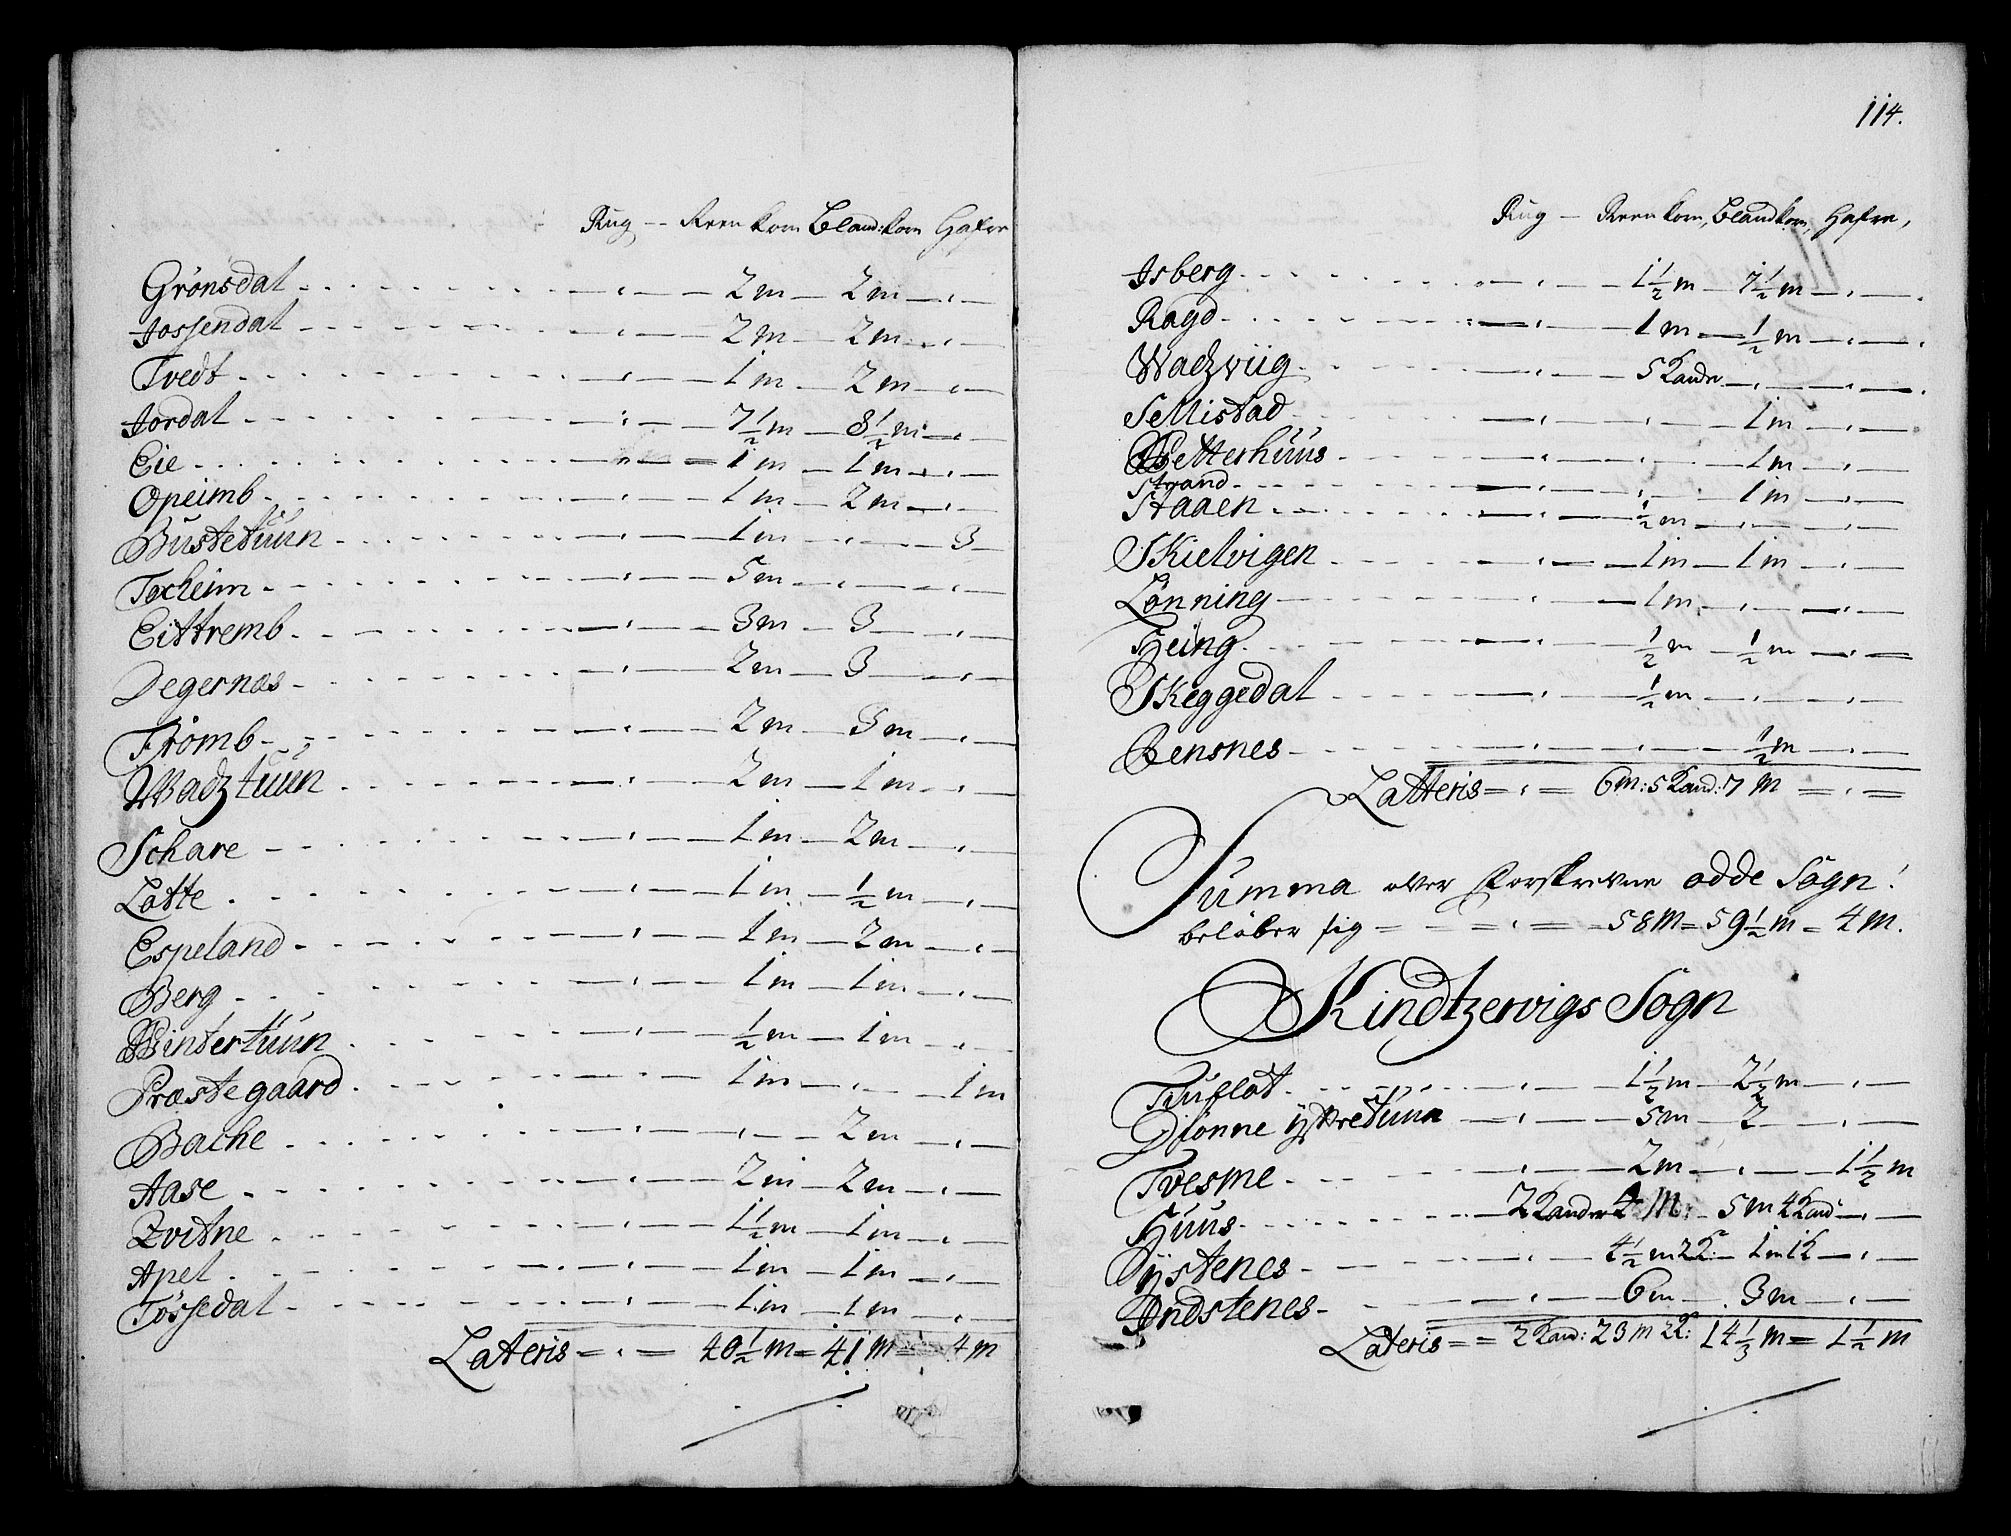 Rug — Reenkorn Bland:korn Hafre
Grönsdal - - - — , — — 2 m — 2 m — , —
Jossendal - - - — , — — 2 m — 2 m — , —
Tvedt - - - — , — — 1 m — 2 m — , —
Jordal - - - — , — — 7½ m — 8½ m — , —
Eie - - - — 1 m — 1 m — , —
Opeimb - - - — , — — 1 m — 2 m — , —
Bustetuun - - - — , — — 1 m — , — 3 —
Tocheim - - - — , — — 5 m — , — , —
Eittremb - - - — , — — 3 m — 3 — , —
Degernæs - - - — , — — 2 m — 3 — , —
Frömb - - - — , — — 2 m — 3 m — , —
Wadztuun - - - — , — — 2 m — 1 m — , —
Schare - - - — , — — 1 m — 2 m — , —
Lotte - - - — , — — 1 m — ½ m — , —
Espeland - - - — , — — 1 m — 2 m — , —
Berg - - - — , — — 1 m — 1 m — , —
Wintertuun - - - — , — — ½ m — 1 m — , —
Præstegaard - - - — , — — 1 m — , — 1 m
Bache - - - — , — — , — 2 m — , —
Aase - - - — , — — 2 m — 2 m — , —
Qvitne - - - — , — — 1½ m — 1 m — , —
Apel - - - — , — — 1 m — 1 m — , —
Tössedal - - - — , — — 1 m — 1 m — , —
Lateris = , = 40½ m = 41 m = 4 m
114.
Rug — Reenkorn, Blandkorn, Hafre,
Isberg - - - — , — 1½ m — 7½ m — , —
Ragd - - - — , — 1 m — ½ m — , —
Wadzviig - - - — , — 5 Kander — , — , —
Sellistad - - - — , — , — 1 m — , —
Petterhuus - - - — , — , — 1 m — , —
Strand - - - — , — , — 1 m — , —
Staaen - - - — , — ½ m — , — , —
Skielvigen - - - — , — 1 m — 1 m — , —
Lönning - - - — , — 1 m — , — , —
Heing - - - — , — ½ m — ½ m — , —
Skeggedal - - - — , — ½ m — , — , —
Bensnes - - - — , — , — ½ m — , —
Latteris = , = 6 m : 5 Kand: 7 m = , =
Summa over Forskrevne Odde Sogn!
belöber sig = = , = 58 m = 59½ m = 4 m.
Kindtzervigs Sogn
Tuuflat - - - — , — 1½ m — 2½ m — , —
Diönne Ÿttretuun — , — 5 m — 2 — , —
Tvesme - - - — , — 2 m — , — 1½ m
Huus - - - 2 Kander 4 m : 5 m 4 Kand — , —
Ÿstenes - - - — , — 4½ m 2 K: — 1 m 1 K — , —
Indstenes - - - — , — 6 m — 3 m — , —
Lateris = = 2 Kand: 23 m 2 K: 14⅓ m = 1½ m